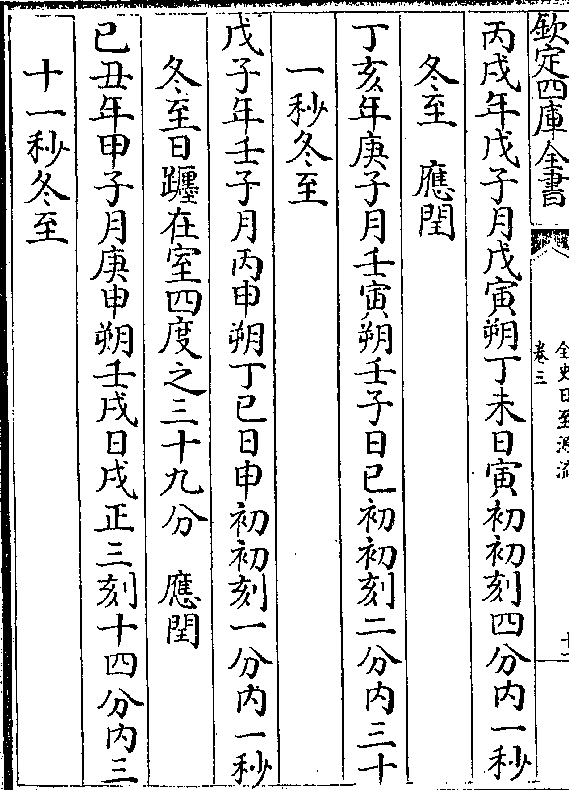 欽定四庫全書
全史日至源流
卷三
十二
丙戌年戊子月戊寅朔丁未日寅初初刻四分内一秒
冬至　應閏
丁亥年庚子月壬寅朔壬子日巳初初刻二分内三十
一秒冬至
戊子年壬子月丙申朔丁巳日申初初刻一分内一秒
冬至日躔在室四度之三十九分　應閏
己丑年甲子月庚申朔壬戌日戌正三刻十四分内三
十一秒冬至